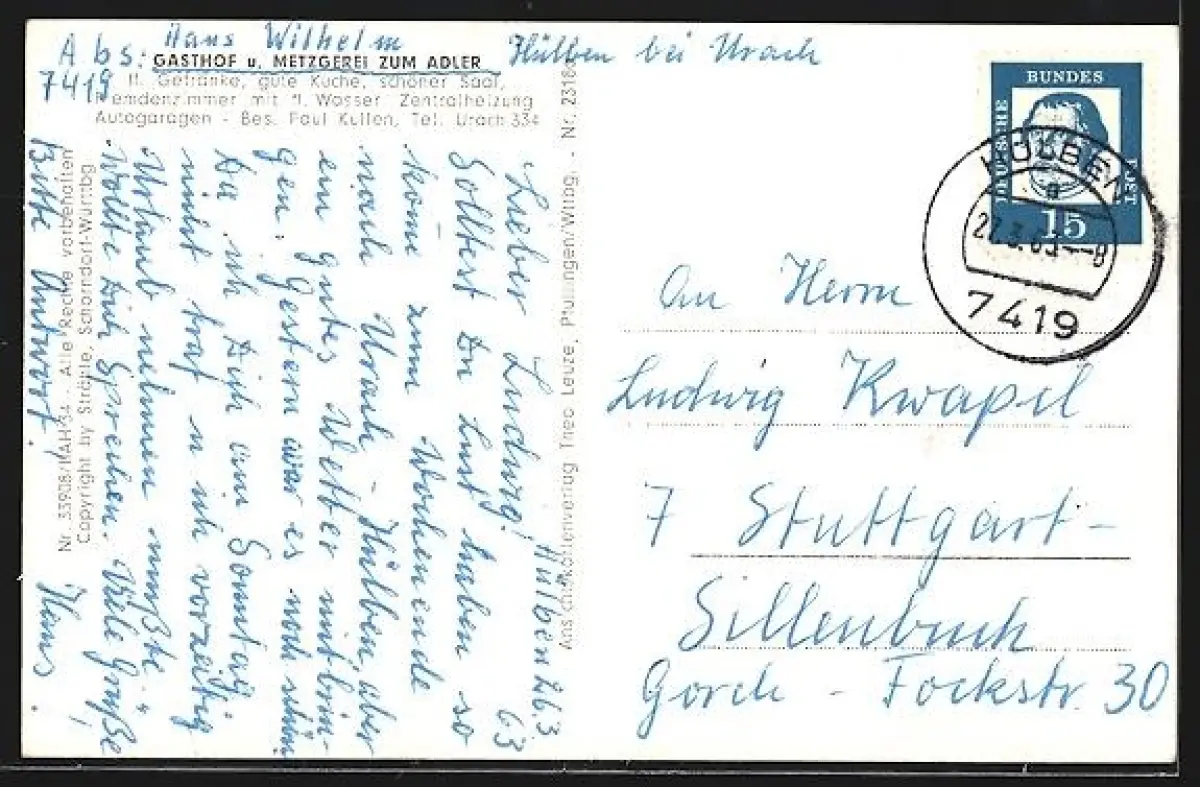 Abs: Hans Wilhelm Hülben bei Urach
7419
GASTHOF u. METZGEREI ZUM ADLER
ff. Getränke, gute Küche, schöner Saal,
Fremdenzimmer mit fl. Wasser Zentralheizung
Autogaragen - Bes. Paul Kullen, Tel. Urach 334
Hülben 26.3
63
Lieber Ludwig!
Solltest Du Lust haben so
kome zum Wochenende
nach Urach - Hülben, aber
ein gutes Wetter mitbrin-
gen. Gestern war es noch schön
Da ich Dich am Sonntag
nicht traf u ich vorzeitig
Urlaub nehmen mußte
wollte Dich Sprechen. Viele Grüße
Bitte Antwort! Hans.
Nr. 33908/MAH 34 - Alle Rechte vorbehalten
Copyright by Strähle, Schorndorf-Württbg
Ansichtskartenverlag Theo Leuze, Pfullingen/Wttbg. - Nr. 2318
DEUTSCHE BUNDES POST
15
HÜLBEN
a
27.3.63--8
7419
An Herrn
Ludwig Kwapil
7 Stuttgart-
Sillenbuch
Gorch - Fockstr. 30